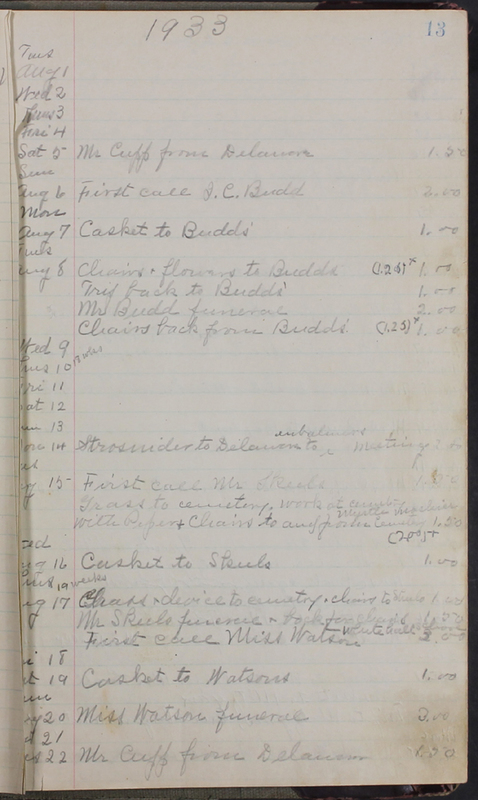 1933
13
Tues
Aug 1
Wed 2
Thurs 3
Fri 4
Sat 5 Mr Cuff from Delaware 1.50
Sun
Aug 6 First call J.C. Budd 2.00
Mon
Aug 7 Casket to Budds 1.00
Tues
Aug 8 Chairs + flowers to Budds (1.25)x 1.00
Trip back to Budds 1.00
Mr Budd funeral 2.00
Chairs back from Budds (1.25)x 1.00
Wed 9
10 13 weeks
Fri 11
Sat 12
13
14 Strosnider to Delaware to embalmers meeting
15 First call Mr Skeels
Grass to cemetery, work at cemetery
with Chairs to and from cemetery 1.50
(2.00)+
16 Casket to Skeels 1.00
19 weeks
17 Chairs + device to cemetry + chairs to 1.00
Mr Skeels funeral + back
First call Miss Watson 2.00
18
19 Casket to Watsons 1.00
20 Miss Watson funeral 2.00
21
22 Mr Cuff from Delaware 1.50